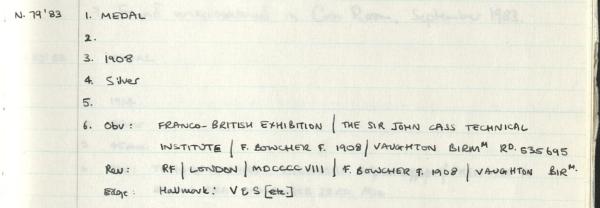 3. Found unaccessioned in Coin Room, September 1983.
N. 79'83 1. MEDAL
2.
3. 1908
4. Silver
5.
6. Obv: FRANCO-BRITISH EXHIBITION | THE SIR JOHN CASS TECHNICAL
INSTITUTE | F. BOWCHER F. 1908 | VAUGHTON BIRM^M RD. 535695
Rev: RF | LONDON | MDCCCCVIII | F. BOWCHER F. 1908 | VAUGHTON BIR^M.
Edge: Hallmark: V & S [etc.]